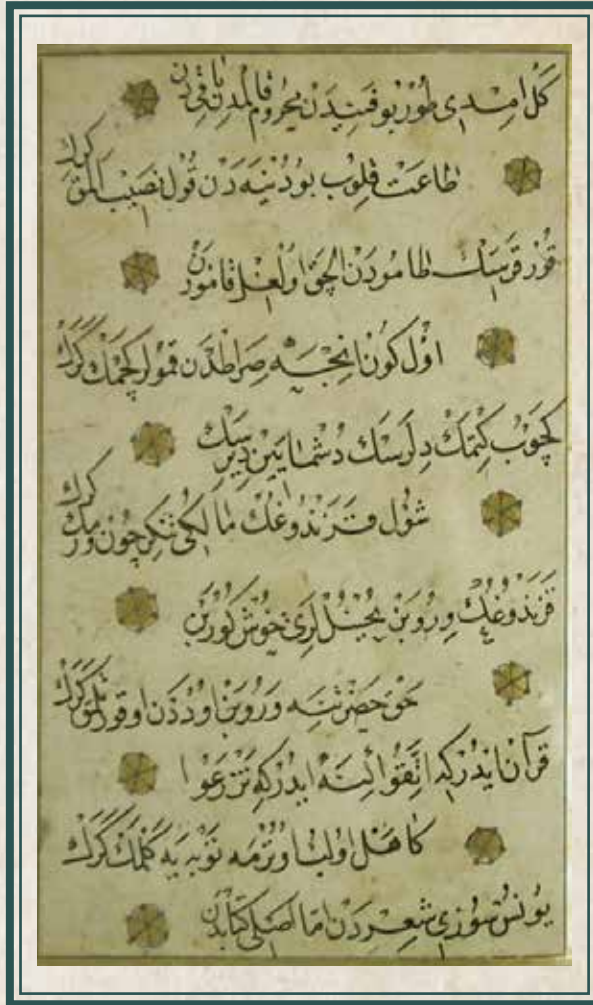 كل امدى طور بو فتنه‌دن يحروم قالمه‌دن باقى‌دن
طاعت قلوب بو دنيه‌دن قول نصيب المق كرك
قورقرسك طامودن الچق اولغل قامودن
اول كون اينجه صراطدن قمولر كچمك كرك
كچوب كتمك دلرسك دشمايين ديرسك
شول قزندوغك مالكى تنكرى‌چون ورمك كرك
قزندوغك ويروبن يخسللرى خوش كوربن
حق حضرتنه وروبن اوددن اوقورتلمق كرك
قرآن ايدر كه اتقوا اليته ايدر كه تزرعوا
كاهل اولب اوترمه توبه‌يه كلمك كرك
يونس سوزى شعردن اما اصلى كتابدن